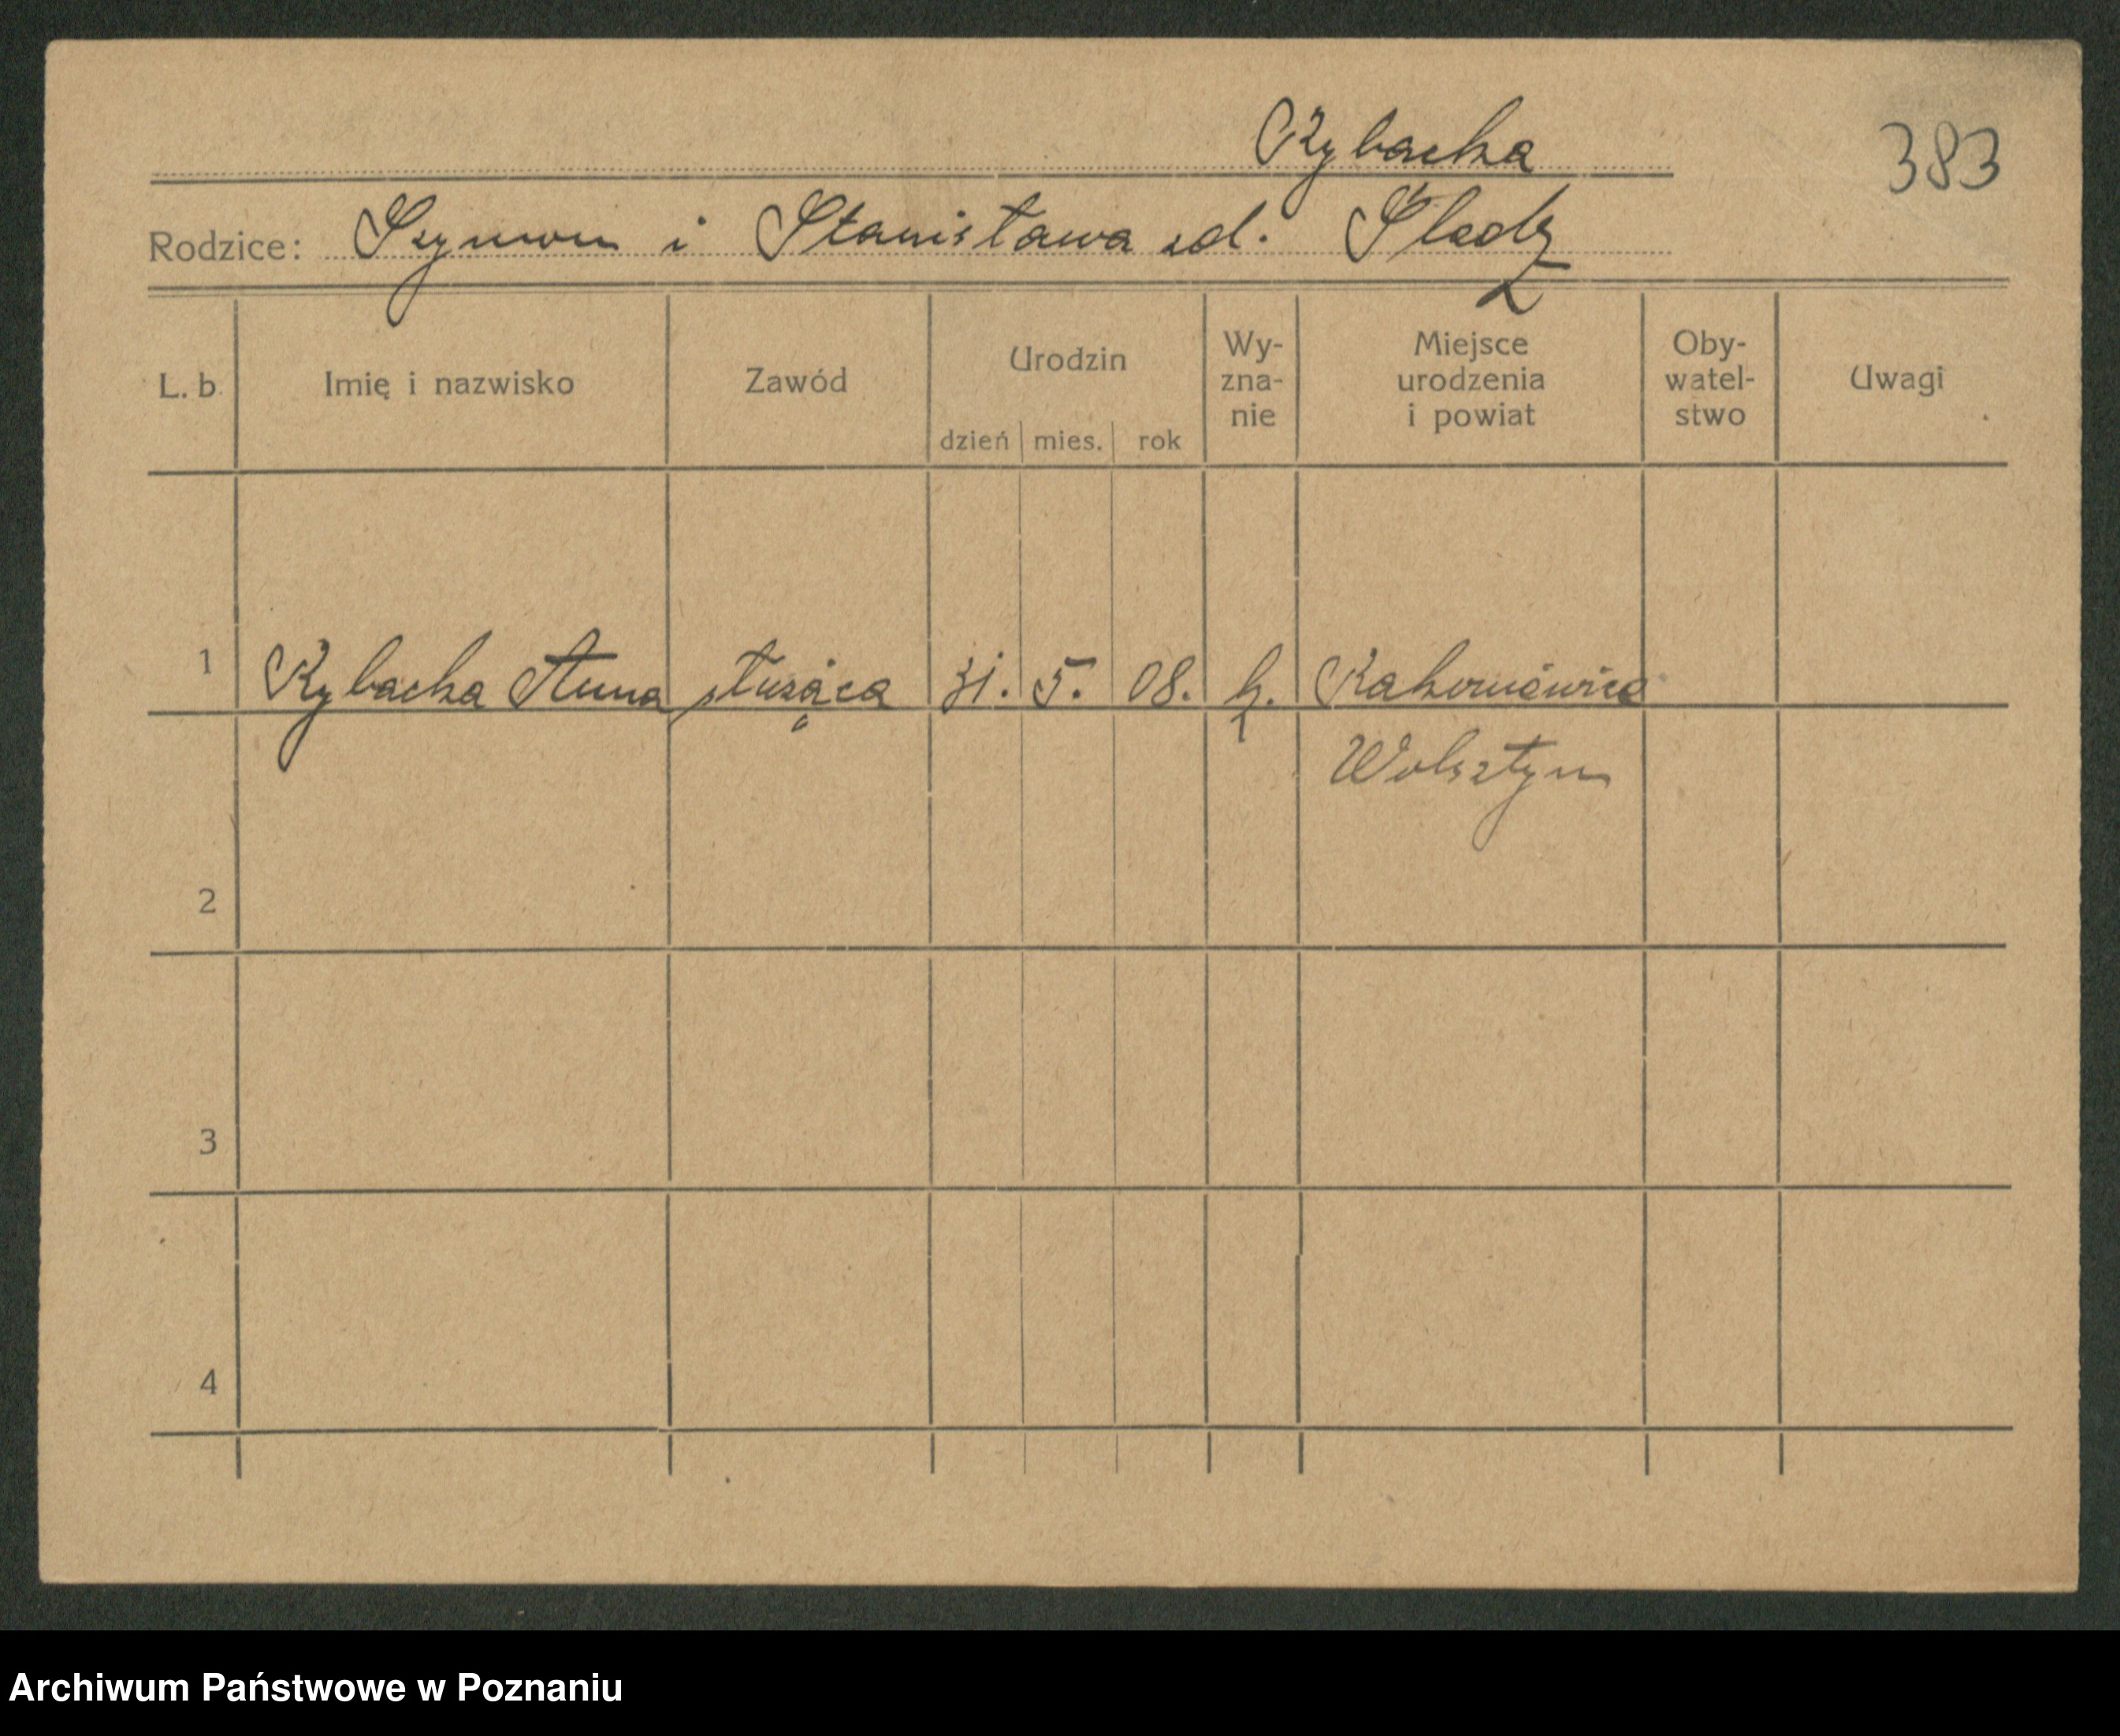 Rybacka
383
Rodzice: Szymon i Stanisława zd. Śledź
L. b. Imię i nazwisko Zawód Urodzin dzień mies. rok Wy-zna-nie Miejsce urodzenia i powiat Oby-watel-stwo Uwagi
1 Rybacka Anna służąca 31. 5. 08. k. Rakoniewice
Wolsztyn
2
3
4
Archiwum Państwowe w Poznaniu